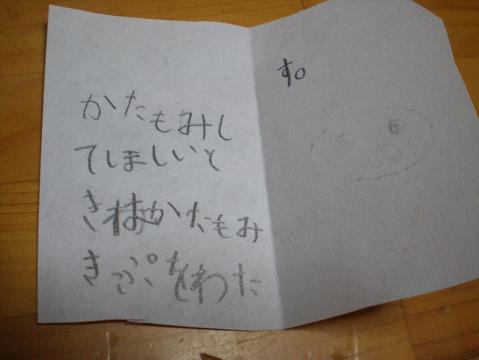 かたもみし
てほしいと
きはかたもみ
きぷをわた
す。